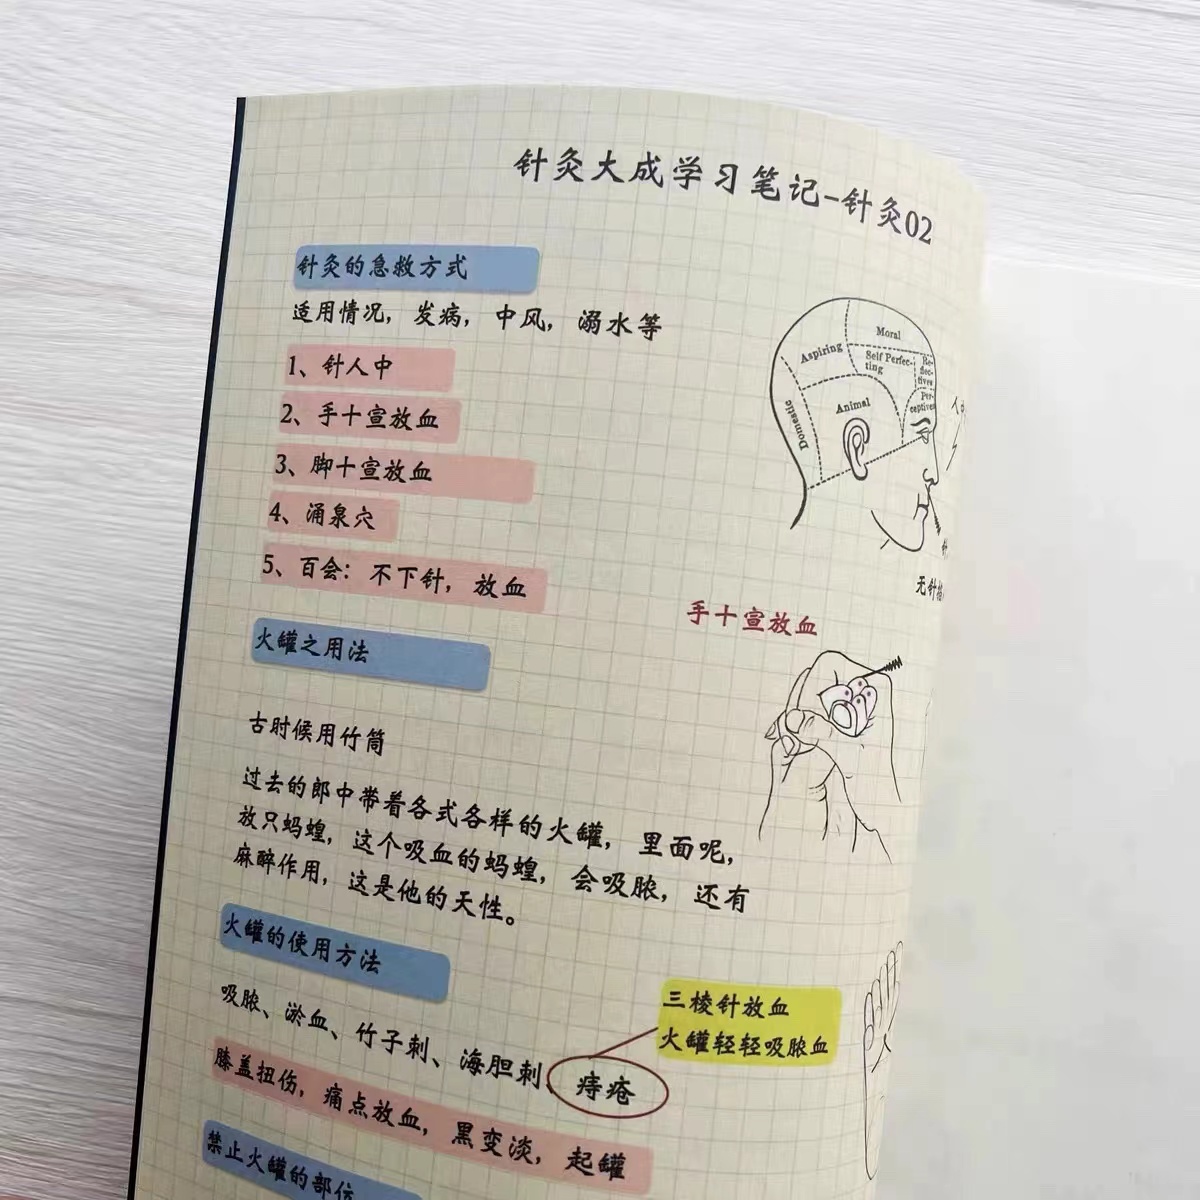 针灸大成学习笔记-针灸02
针灸的急救方式
适用情况，发病，中风，溺水等
1、针人中
2、手十宣放血
3、脚十宣放血
4、涌泉穴
5、百会：不下针，放血
Moral
Aspiring
Self Perfec-
ting
Re-
flec-
tives
Per-
ceptives
Animal
Domestic
人中
无针
手十宣放血
火罐之用法
古时候用竹筒
过去的郎中带着各式各样的火罐，里面呢，
放只蚂蝗，这个吸血的蚂蝗，会吸脓，还有
麻醉作用，这是他的天性。
火罐的使用方法
吸脓、淤血、竹子刺、海胆刺、痔疮
三棱针放血
火罐轻轻吸脓血
膝盖扭伤，痛点放血，黑变淡，起罐
禁止火罐的部位